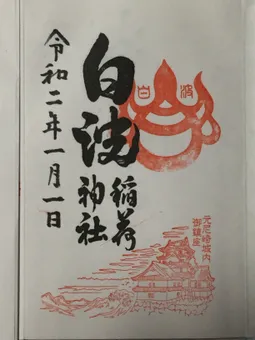 令和二年一月一日
白波
稲荷
神社
白 波
元尼崎城内
御鎮座